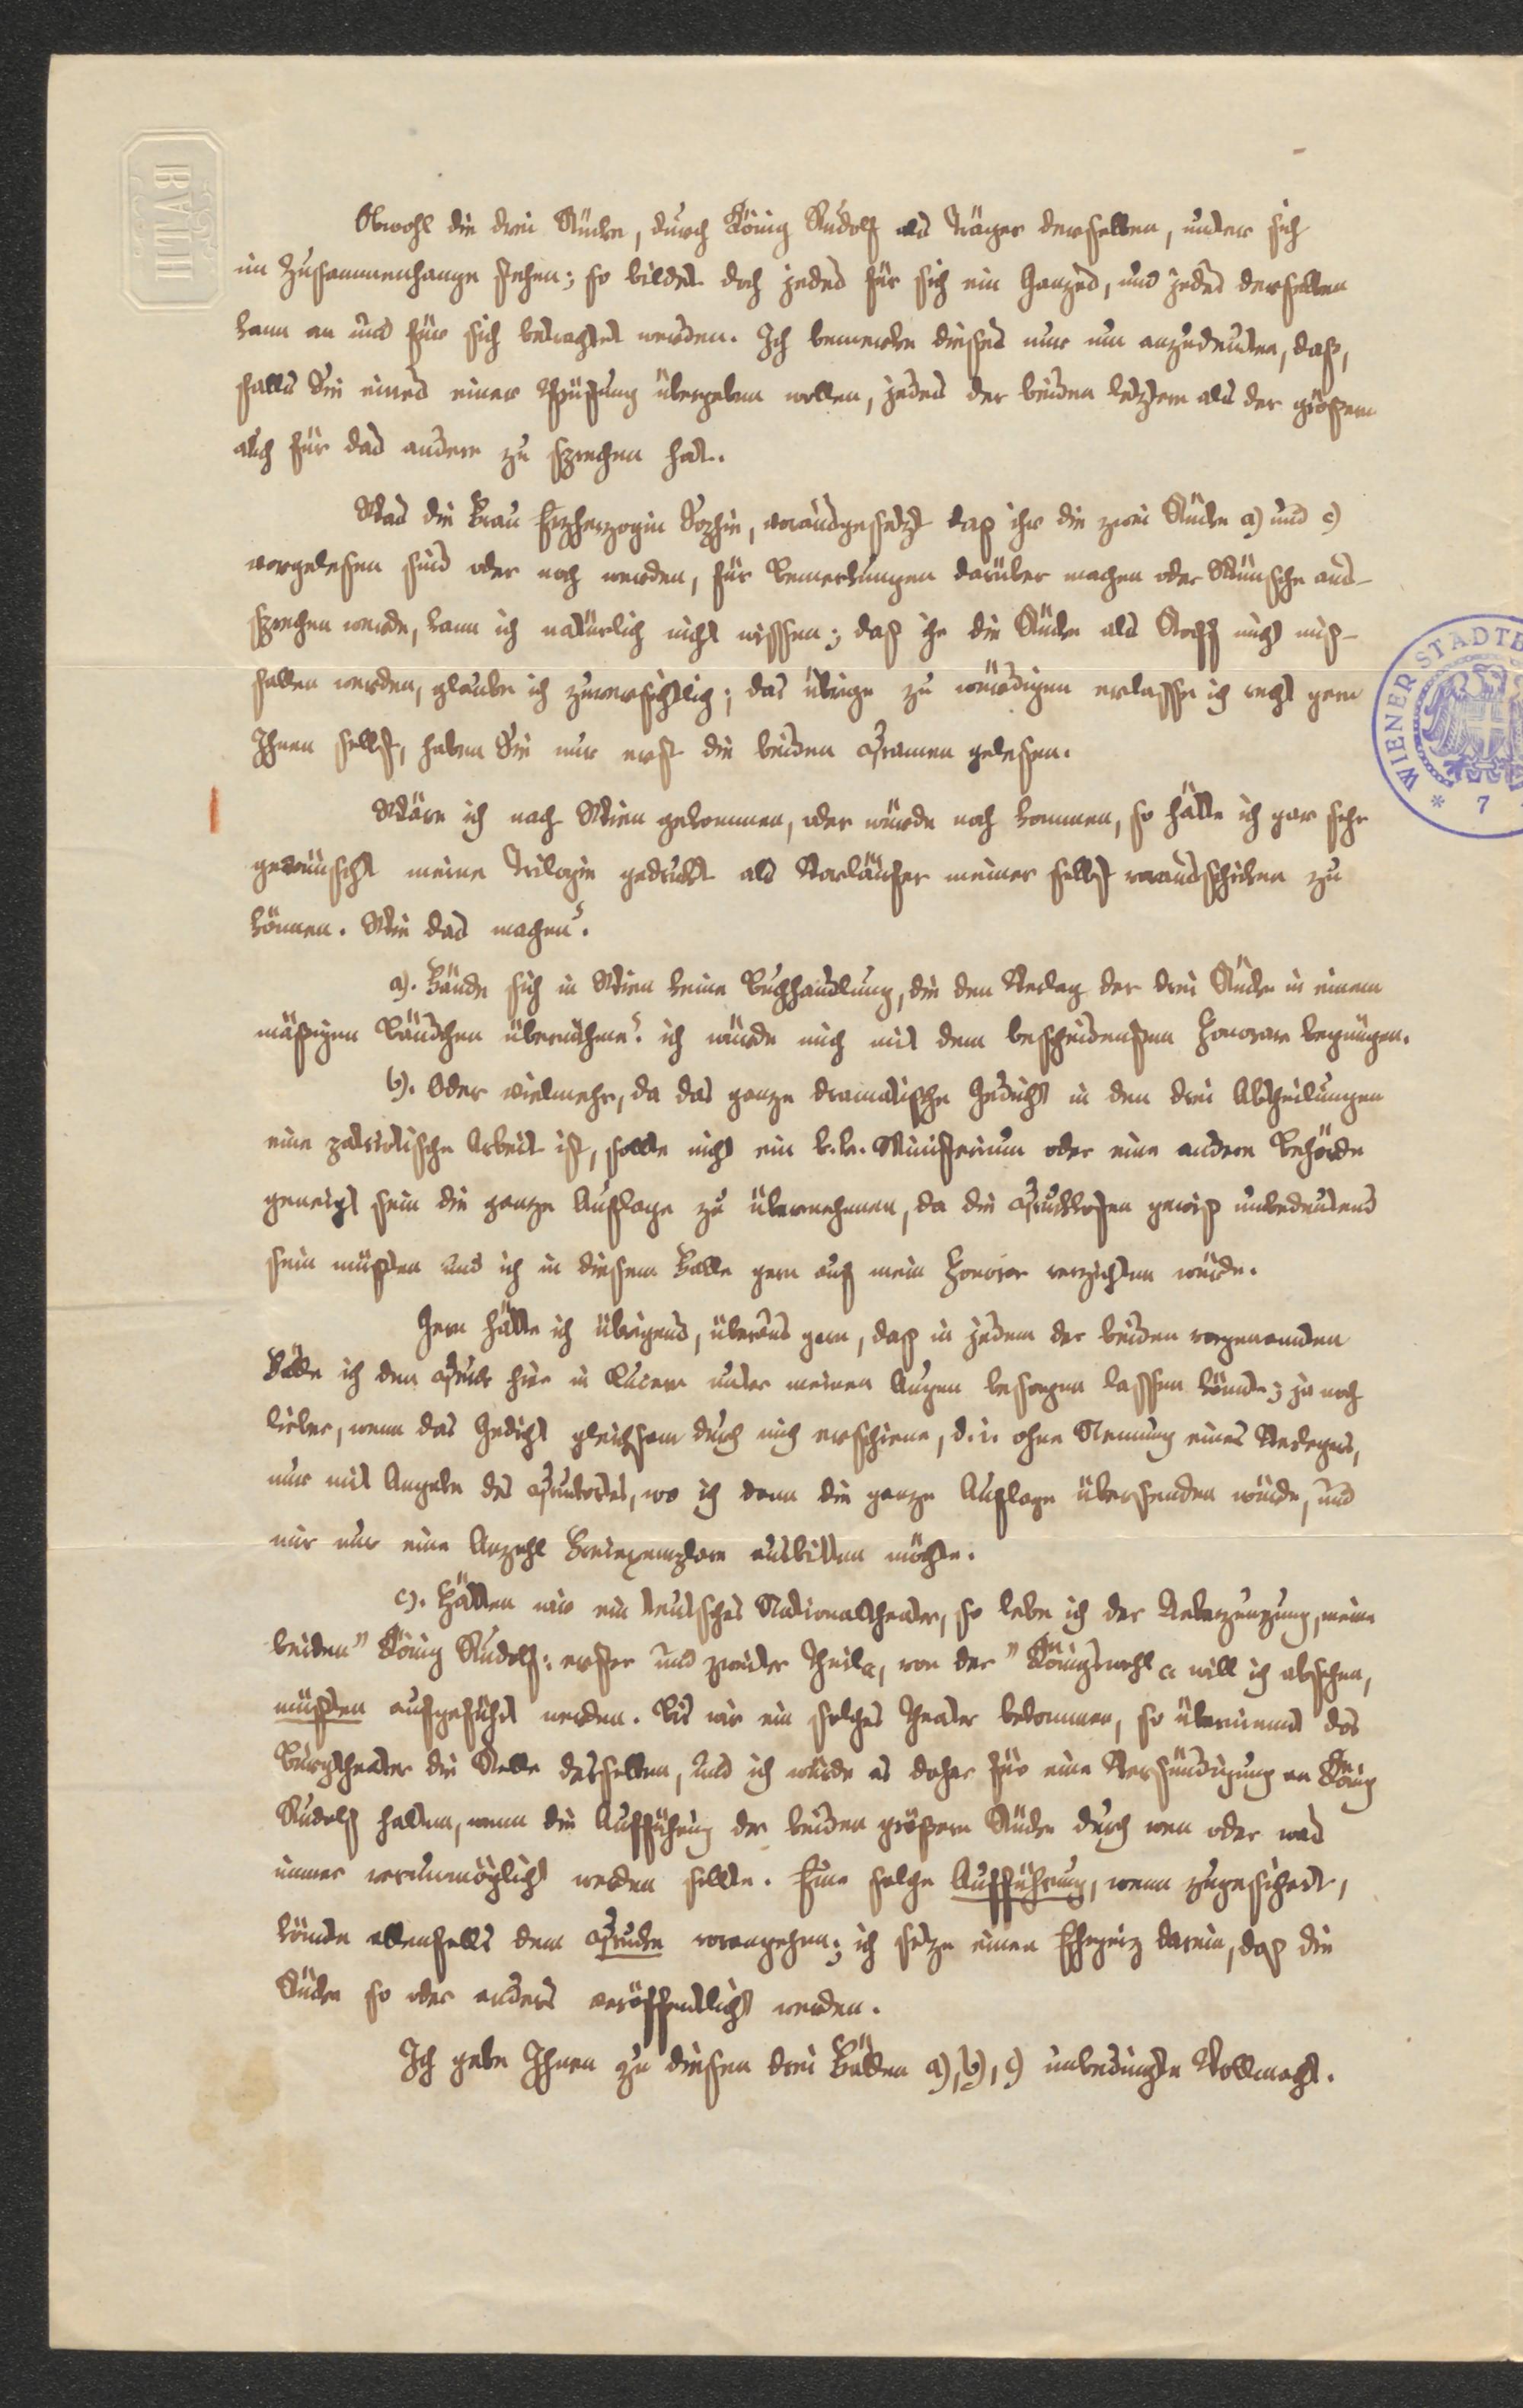 BATH
Obwohl die drei Stücke, durch König Rudolf als Träger derselben, unter sich
im Zusammenhange stehen; so bildet doch jedes für sich ein Ganzes, und jedes derselben
kann an und für sich betrachtet werden. Ich bemerke dieses nur um anzudeuten, daß,
falls Sie eines einer Prüfung übergeben wollen, jedes der beiden letztern als der größern
auch für das andere zu sprechen hat.
Was die Frau Erzherzogin Sophie, vorausgesetzt daß ihr die zwei Stücke a) und c)
vorgelesen sind oder noch werden, für Bemerkungen darüber machen oder Wünsche aus-
sprechen werde, kann ich natürlich nicht wissen; daß ihr die Stücke als Stoff nicht miß-
fallen werden, glaube ich zuversichtlich; das übrige zu würdigen erlasse ich recht gern
Ihnen selbst, haben Sie nur erst die beiden Dramen gelesen.
Wäre ich nach Wien gekommen, oder würde noch kommen, so hätte ich gar sehr
gewünscht meine Trilogie gedruckt als Vorläufer meiner selbst vorausschicken zu
können. Wie das machen?
a). Fände sich in Wien keine Buchhandlung, die den Verlag der drei Stücke in einem
mäßigen Bändchen übernähme? ich würde mich mit dem bescheidensten Honorare begnügen.
b). Oder vielmehr, da das ganze dramatische Gedicht in den drei Abtheilungen
eine patriotische Arbeit ist, sollte nicht ein k.k. Ministerium oder eine andere Behörde
geneigt sein die ganze Auflage zu übernehmen, da die Druckkosten gewiß unbedeutend
sein müßten und ich in diesem Falle gern auf mein Honorar verzichten würde.
Gern hätte ich übrigens, überaus gern, daß in jedem der beiden vorgenannten
Fälle ich den Druck hier in Lucern unter meinen Augen besorgen lassen könnte; ja noch
lieber, wenn das Gedicht gleichsam durch mich erschiene, d.i. ohne Nennung eines Verlegers,
nur mit Angabe des Druckortes, wo ich dann die ganze Auflage übersenden würde, und
mir nur eine Anzahl Freiexemplare ausbitten möchte.
c). Hätten wir ein deutsches Nationaltheater, so lebe ich der Ueberzeugung, meine
beiden "König Rudolf: erster und zweiter Theil", von der "Königswahl" will ich absehen,
müßten aufgeführt werden. Bis wir ein solches Theater bekommen, so übernimmt das
Burgtheater die Stelle desselben, und ich würde es daher für eine Versündigung an König
Rudolf halten, wenn die Aufführung der beiden größern Stücke durch wen oder was
immer verunmöglicht werden sollte. Eine solche Aufführung, wenn zugesichert,
könnte allenfalls dem Drucke vorangehen; ich setze einen Ehrgeiz darein, daß die
Stücke so oder anders veröffentlicht werden.
Ich gebe Ihnen zu diesen drei Fällen a), b), c) unbedingte Vollmacht.
WIENER STADTB
* 7